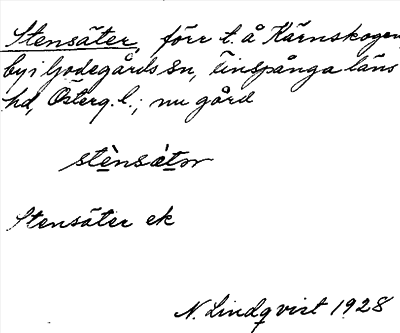 Stensäter, förr t. å Kärnskogen,
by i Godegårds sn, Finspånga läns
hd, Österg. l.; nu gård
stènsä̀tər
Stensäter ek
N. Lindqvist 1928